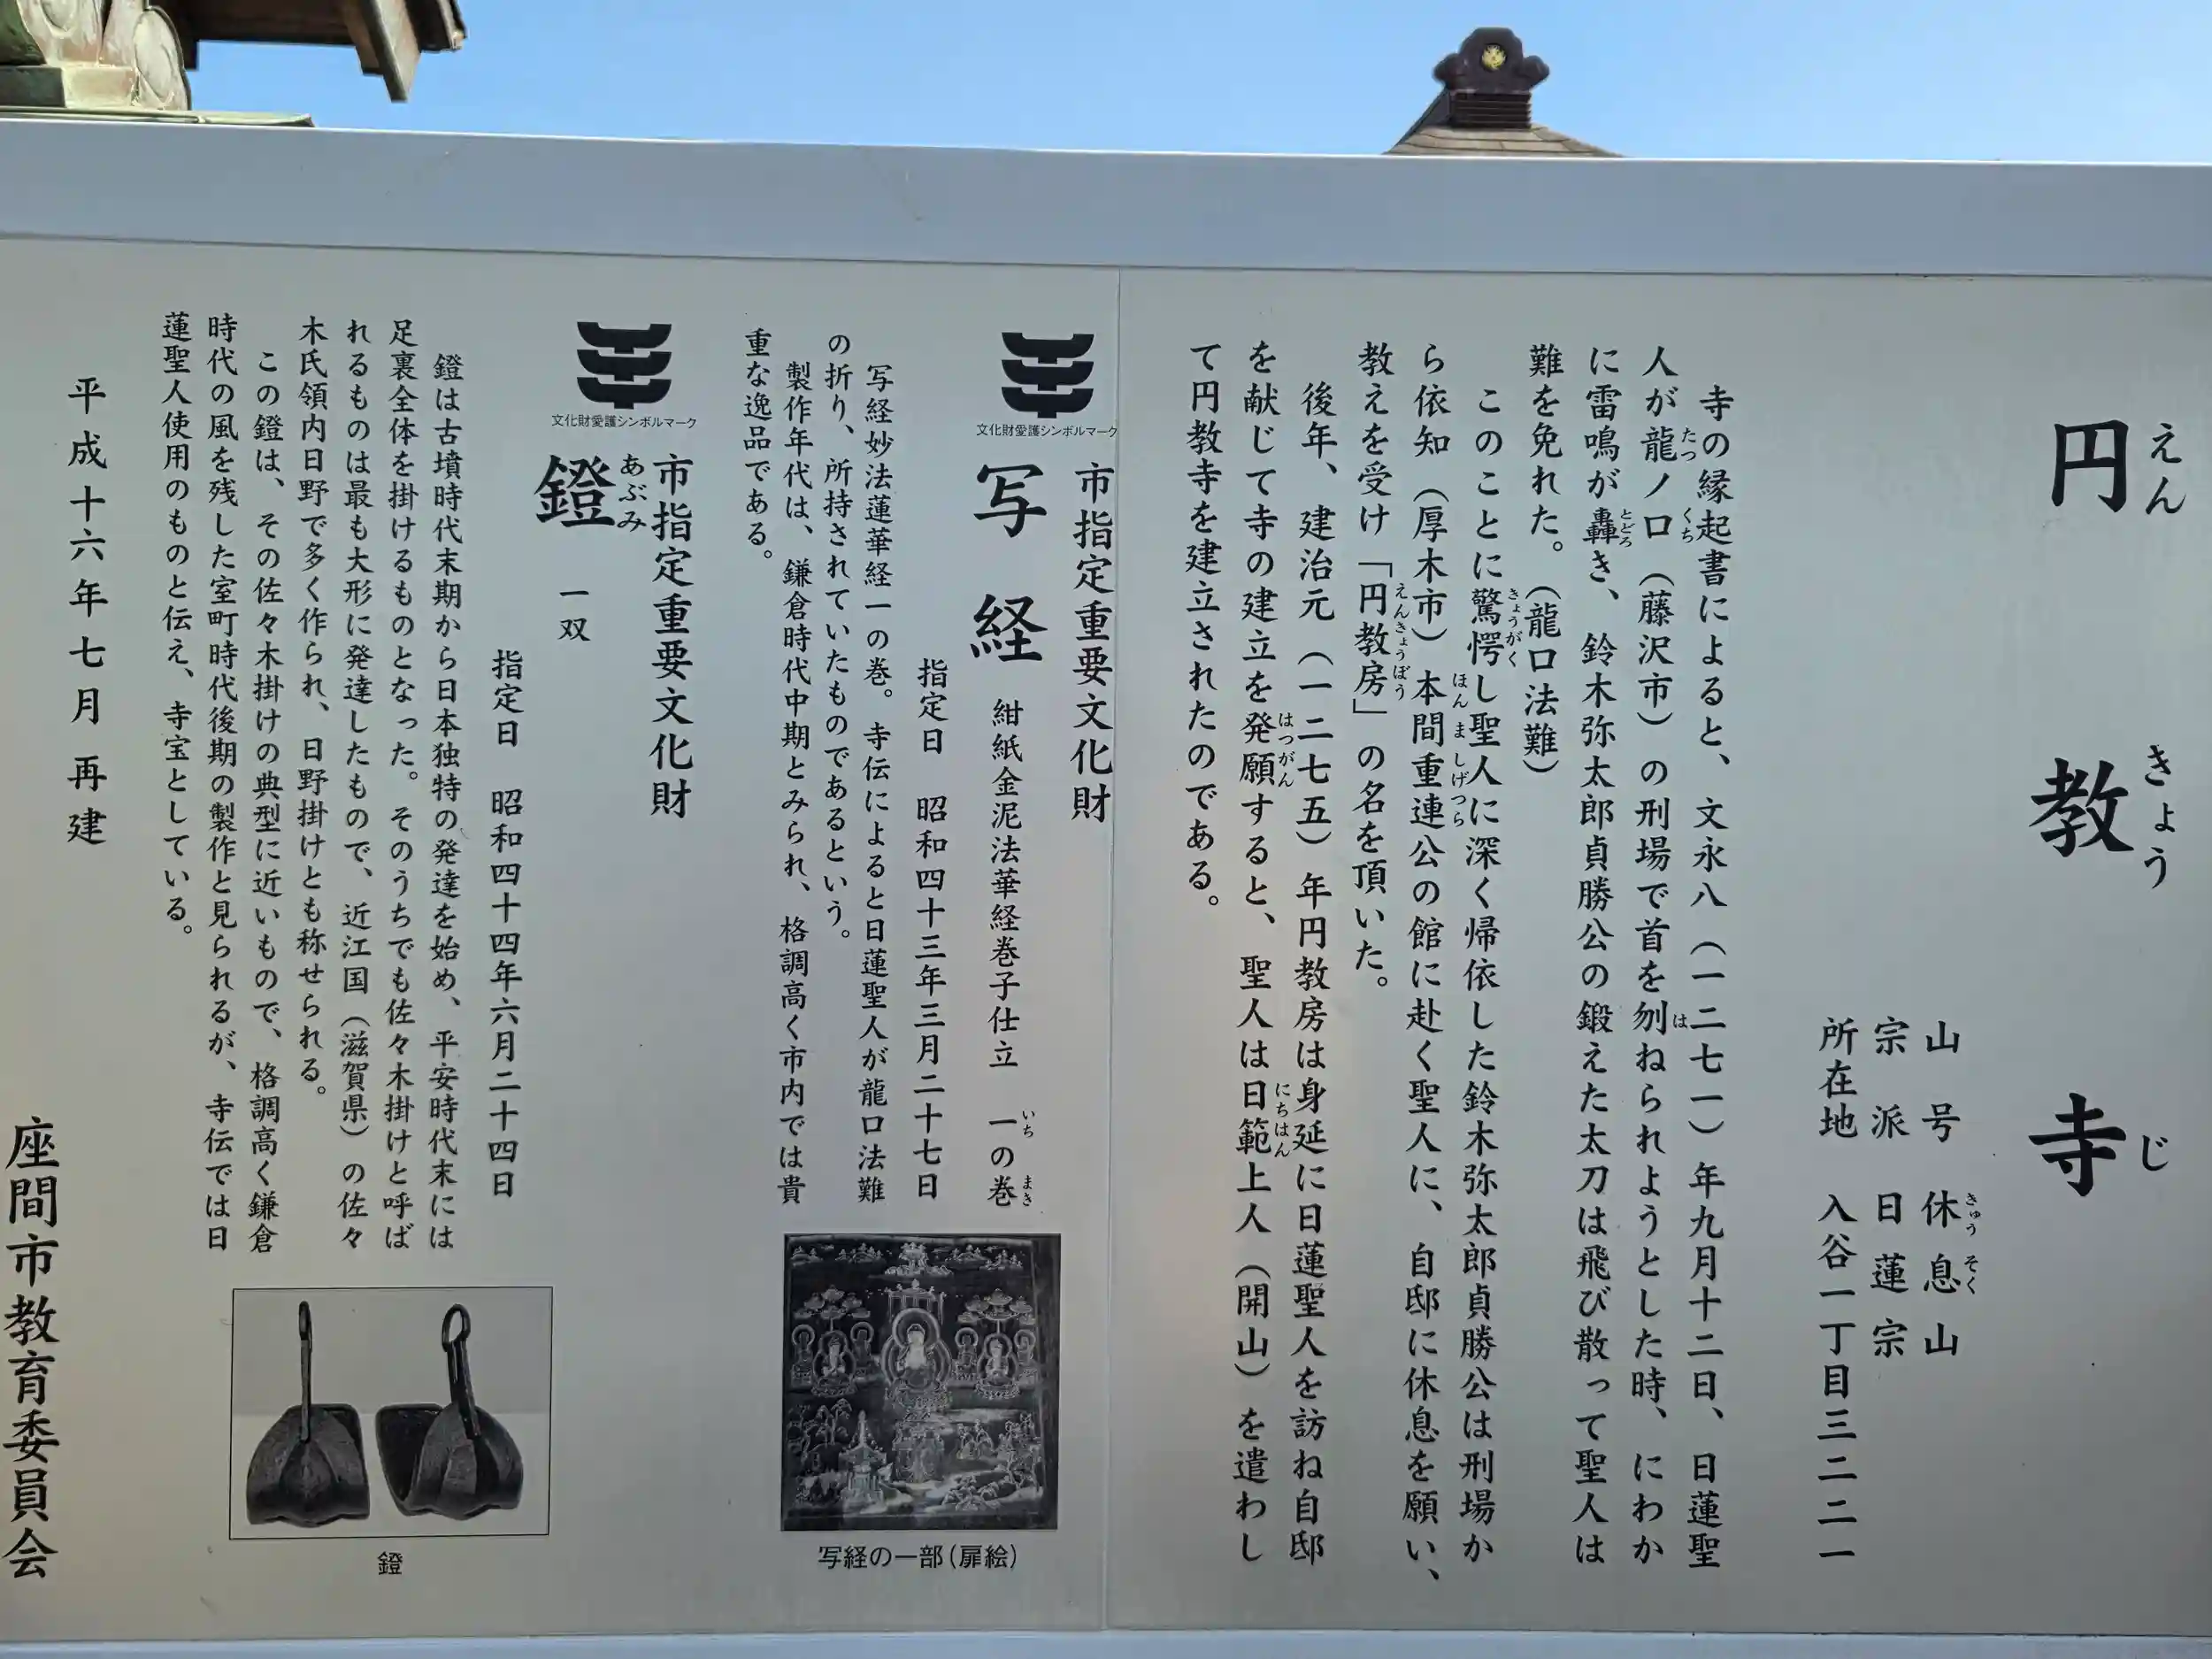 円教寺
えんきょうじ
山号 休息山
きゅうそく
宗派 日蓮宗
所在地 入谷一丁目三二二一
寺の縁起書によると、文永八（一二七一）年九月十二日、日蓮聖
人が龍ノ口（藤沢市）の刑場で首を刎ねられようとした時、にわか
たつ くち は
に雷鳴が轟き、鈴木弥太郎貞勝公の鍛えた太刀は飛び散って聖人は
とどろ
難を免れた。（龍口法難）
このことに驚愕し聖人に深く帰依した鈴木弥太郎貞勝公は刑場か
きょうがく
ら依知（厚木市）本間重連公の館に赴く聖人に、自邸に休息を願い、
ほんましげつら
教えを受け「円教房」の名を頂いた。
えんきょうぼう
後年、建治元（一二七五）年円教房は身延に日蓮聖人を訪ね自邸
を献じて寺の建立を発願すると、聖人は日範上人（開山）を遣わし
はつがん にちはん
て円教寺を建立されたのである。
文化財愛護シンボルマーク
市指定重要文化財
写経 紺紙金泥法華経巻子仕立 一の巻
いち まき
指定日 昭和四十三年三月二十七日
写経妙法蓮華経一の巻。寺伝によると日蓮聖人が龍口法難
の折り、所持されていたものであるという。
製作年代は、鎌倉時代中期とみられ、格調高く市内では貴
重な逸品である。
写経の一部（扉絵）
文化財愛護シンボルマーク
市指定重要文化財
鐙 一双
あぶみ
指定日 昭和四十四年六月二十四日
鐙は古墳時代末期から日本独特の発達を始め、平安時代末には
足裏全体を掛けるものとなった。そのうちでも佐々木掛けと呼ば
れるものは最も大形に発達したもので、近江国（滋賀県）の佐々
木氏領内日野で多く作られ、日野掛けとも称せられる。
この鐙は、その佐々木掛けの典型に近いもので、格調高く鎌倉
時代の風を残した室町時代後期の製作と見られるが、寺伝では日
蓮聖人使用のものと伝え、寺宝としている。
鐙
平成十六年七月再建
座間市教育委員会